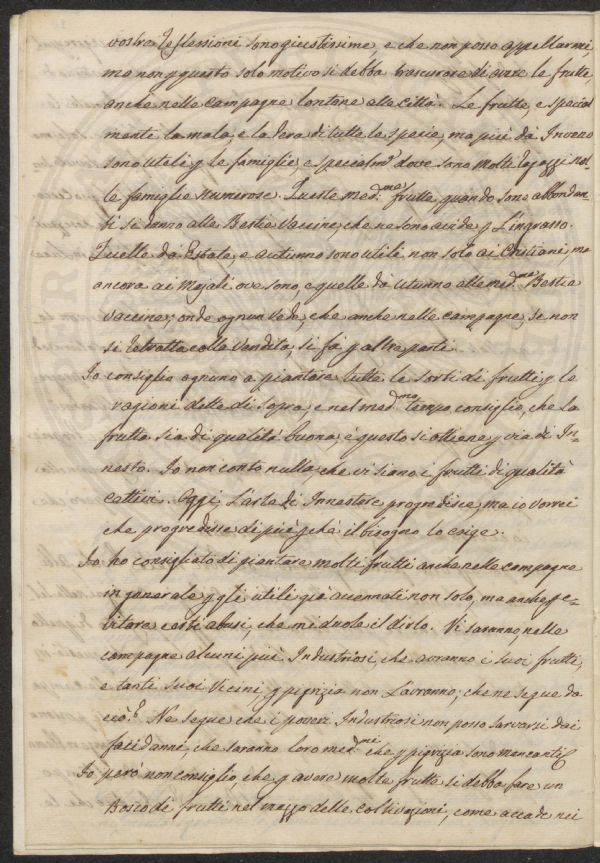 vostre riflessioni sono giustissime, e che non posso appellarmi,
ma non p questo solo motivo si debba trascurare di avere le frutte,
anche nelle campagne lontane alla città. Le frutte, e special
mente la mela, e la Pera di tutte le specie, ma più da Inverno
sono utili p le famiglie, e specialm.e dove sono molti Ragazzi nel
le famiglie numerose. Queste med.me frutte, quando sono abbondan
ti si danno alle Bestie Vaccine, che ne sono avide p L'ingrasso.
Quelle da Estate, e autunno sono utili non solo ai Cristiani, ma
ancora ai Majali ove sono, e quelle da Autunno alle med.me Bestie
Vaccine; onde ognun vede, che anche nelle campagne, se non
si ritratta colla vendita, si fà p altre parti.
Io consiglio ognuno a piantare tutte le sorti di frutti, p le
ragioni dette di sopra, e nel med.mo tempo consiglio, che la
frutta sia di qualità buona, e questo si ottiene p via di In=
nesto. Io non conto nulla, che vi siano i frutti di qualità
cattivi. Oggi L'arte di Innestare progredisce, ma io vorrei
che progredisse di più p chè il bisogno lo esige.
Io ho consigliato di piantare molti frutti anche nelle campagne
in generale p gli utili già accennati non solo, ma anche p e=
vitare certi abusi, che mi duole il dirlo. Vi saranno, nelle
campagne alcuni più Industriosi, che avranno i suoi frutti,
e tanti suoi Vicini, p pigrizia non L'avranno; che ne segue da
ciò? Ne segue che i poveri Industriosi non posso sarvarsi dai
faci danni, che saranno loro med.mi che p pigrizia sono mancanti.
Io però non consiglio, che p avere molte frutti si debba fare un
Bosco di frutti nel mezzo delle coltivazioni, come accade nei